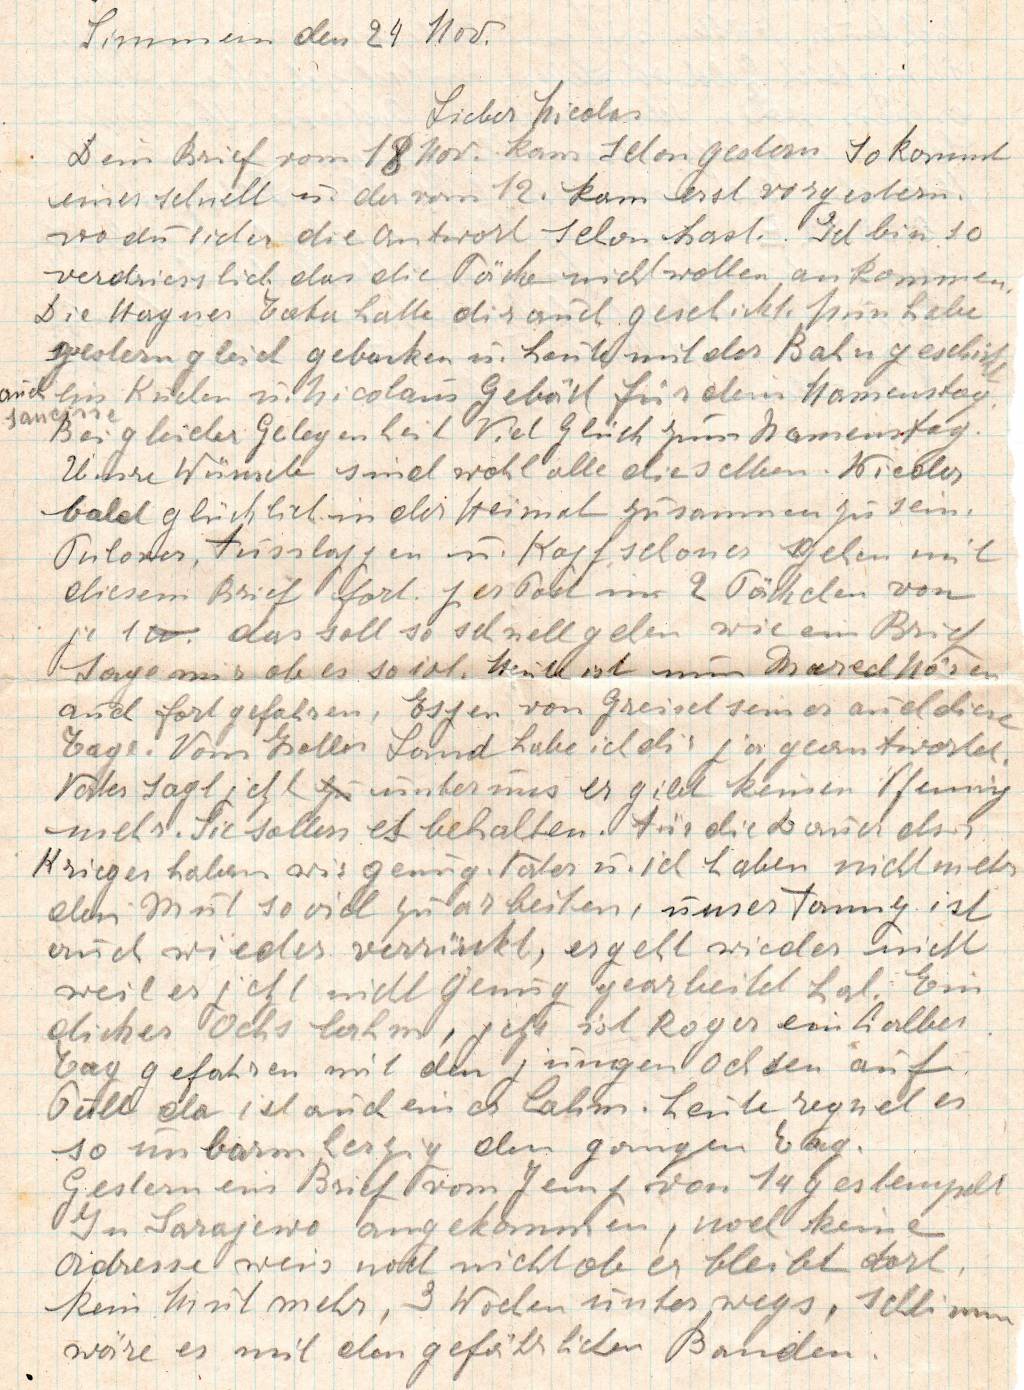 Simmern den 24 Nov.
Lieber Nicolas
Dein Brief vom 18 Nov. kam schon gestern so kommt
einer schnell u. der vom 12. kam erst vorgestern.
wo du sicher die antwort schon hast. Ich bin so
verdriesslich das die Päcke nicht wollen ankommen.
Die Wagner Tata hatte dir auch geschikt. nun habe
gestern gleich gebacken u. heute mit der Bahn geschickt
auch saucisse
ein Kuchen u. Nicolaus Gebäck für dein Namenstag.
Bei gleicher Gelegenheit Viel Glück zum Namenstag.
Unsre Wünsche sind wohl alle dieselben. Wieder
bald glücklich in der Heimat zusammen zu sein.
Pulover, Fusslappen u. Kopfschoner gehen mit
diesem Brief fort. per Post in 2 Päkchen von
je 1 das soll so schnell gehen wie ein Brief
Sage mir ob es so ist. Heute ist nun
auch fortgefahren, von seiner auch diese
Tage. Vom Land habe ich dir ja geantwortet.
Vater sagt jetzt unter uns er gibt keinen Pfennig
mehr. Sie sollen es behalten. Für die Dauer des
Krieges haben wir genug. Vater u. ich haben nicht mehr
den Mut so viel zu arbeiten, unser Fanny ist
auch wieder verrückt, er geht wieder nicht
weil er jetzt nicht Genug gearbeitet hat. Ein
dicker Ochs lahm, jetzt ist Roger ein halber
Tag gefahren mit den jungen Ochsen auf
da ist auch einer lahm. heute regnet es
so unbarmherzig den ganzen Tag.
Gestern ein Brief vom Jemp von 14 gestempelt
In Sarajewo angekommen, noch keine
Adresse weis noch nicht ob er bleibt dort,
kein Mut mehr, 3 Wochen unterwegs, schlimm
wäre es mit den gefährlichen Banden.